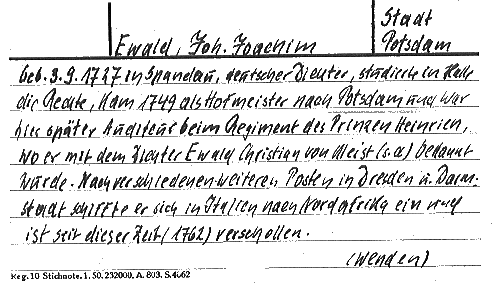 Stadt
Ewald, Joh. Joachim
Potsdam
Geb. 3.9.1727 in Spandau, deutscher Dichter, studierte in Halle
die Rechte, kam 1749 als Hofmeister nach Potsdam und war
hier später Auditeur beim Regiment des Prinzen Heinrich,
wo er mit dem Dichter Ewald Christian von Kleist (s.d.) bekannt
wurde. Nach verschiedenen weiteren Posten in Dresden u. Darm-
stadt schiffte er sich in Italien nach Nordafrika ein und
ist seit dieser Zeit (1762) verschollen.
(wenden)
Reg. 10 Stichnote. 1. 50. 232000. A. 803. S. 4062